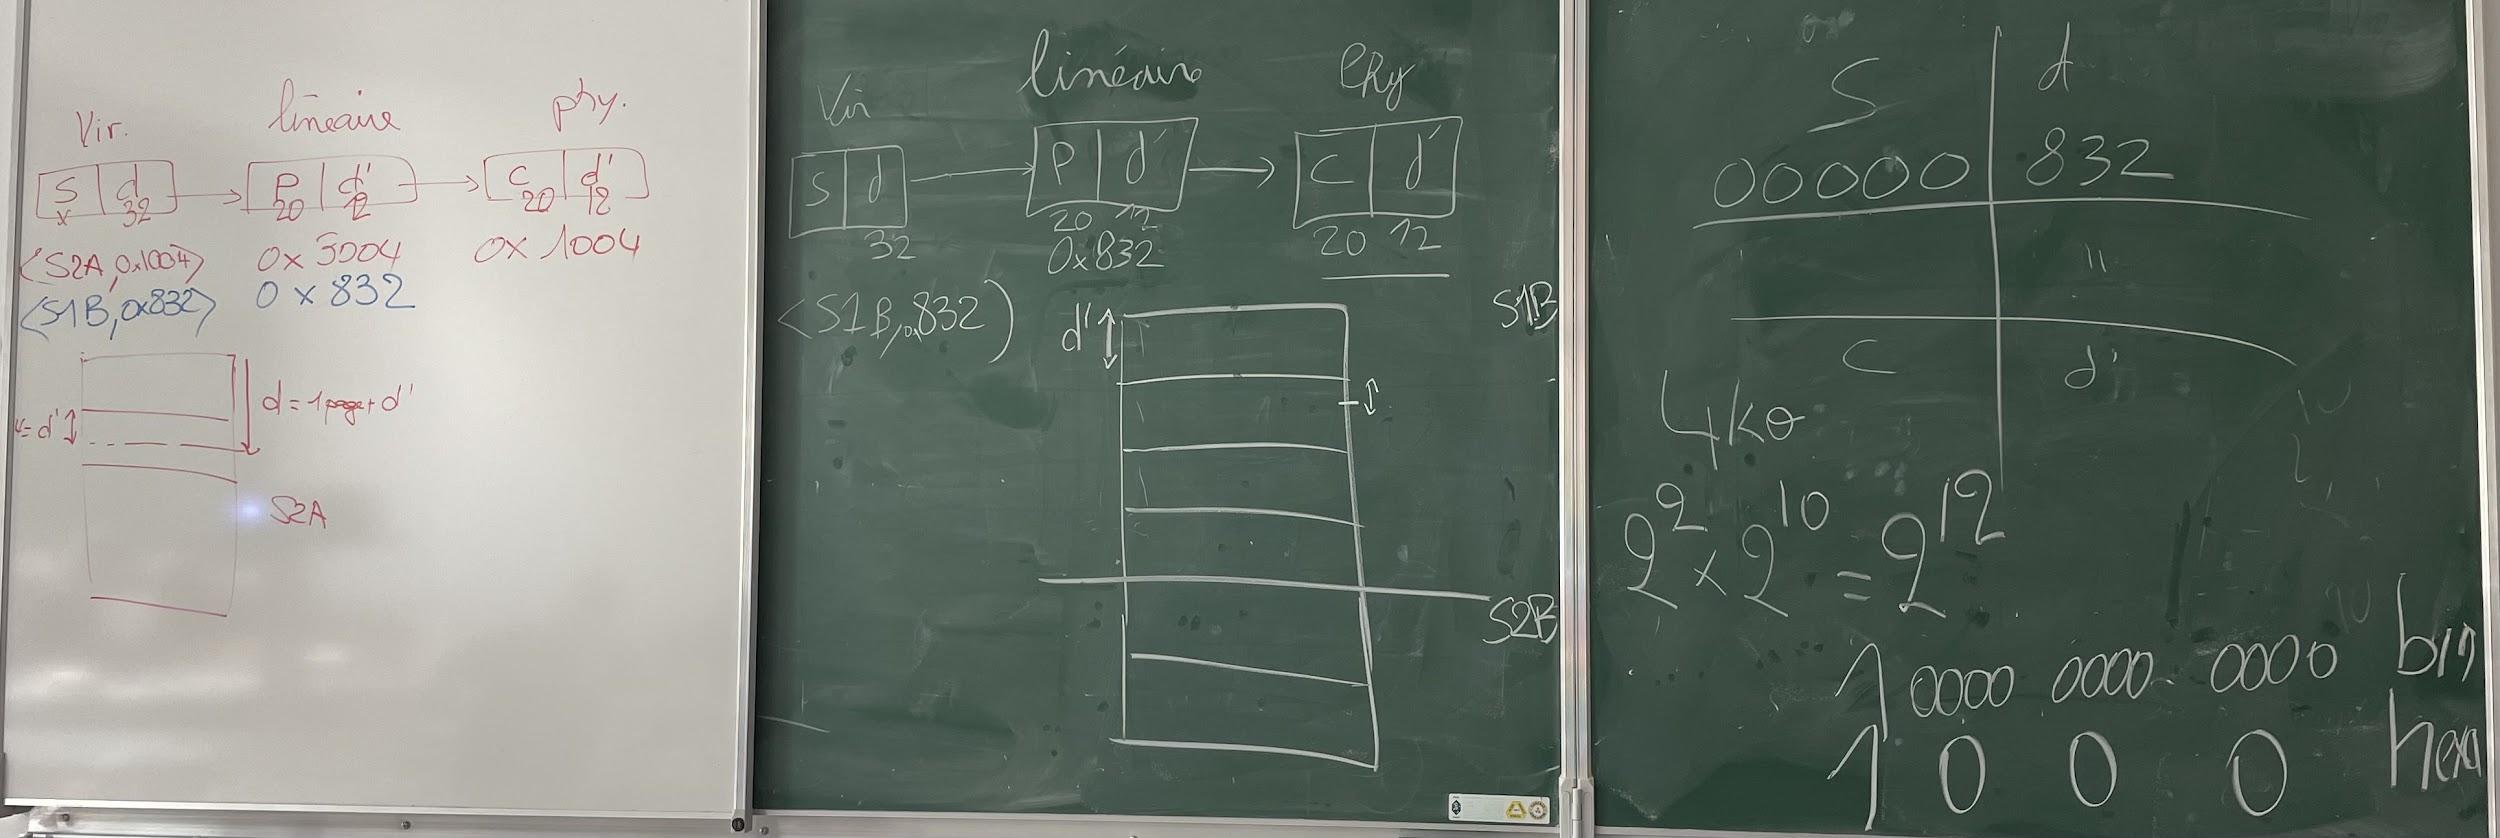 Vir. linéaire phy.
S d P d' C d'
x 32 20 12 20 12
<S2A, 0x1004> 0x5004 0x1004
<S1B, 0x832> 0x832
d = 1 page + d'
4 = d'
S2A
Vir linéaire Phy
S d P d' C d'
32 20 12 20 12
0x832
<S1B, 0x832>
d'
S1B
S2B
S d
00000 832
"
C d'
4ko
2² x 2¹⁰ = 2¹²
1 0000 0000 0000 bin
1 0 0 0 hexa